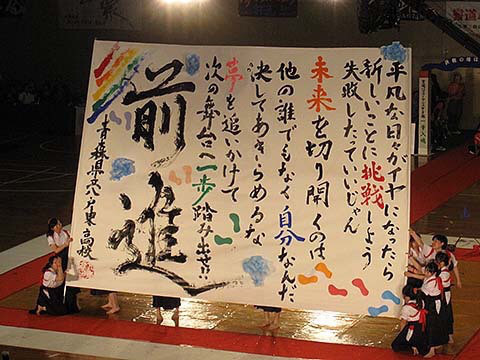 平凡な日々がイヤになったら
新しいことに挑戦しよう
失敗したっていいじゃん
未来を切り開くのは
他の誰でもなく自分なんだ
決してあきらめるな
夢を追いかけて
次の舞台へ一歩踏み出せ!!
前進
青森県立八戸東高校